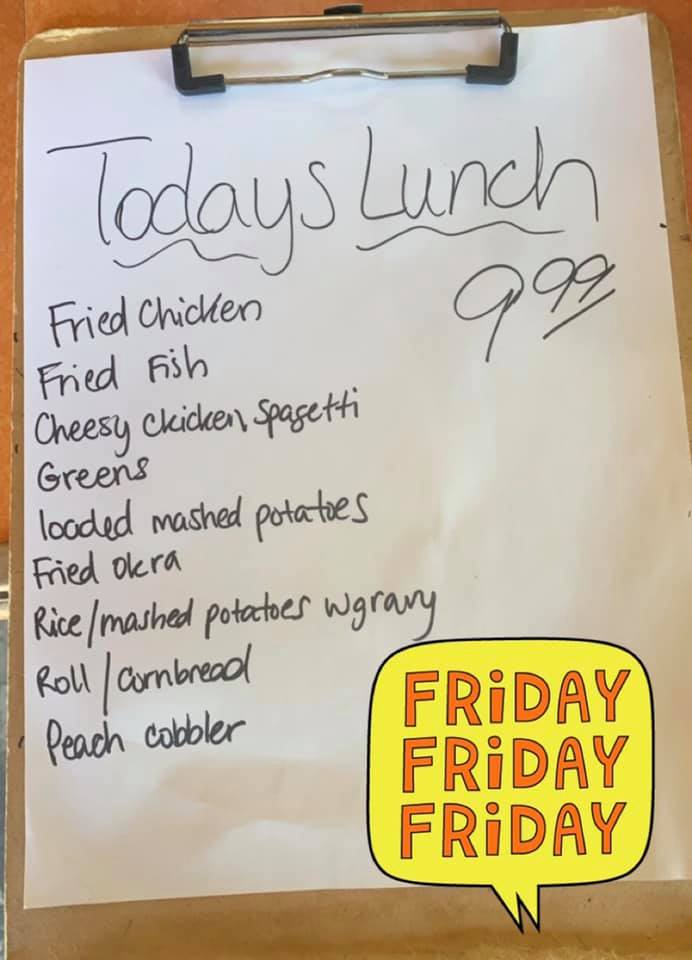 Todays Lunch
9.99
Fried Chicken
Fried Fish
Cheesy Ckicken Spagetti
Greens
loaded mashed potatoes
Fried Okra
Rice/mashed potatoes w gravy
Roll/cornbread
Peach cobbler
FRiDAY
FRiDAY
FRiDAY